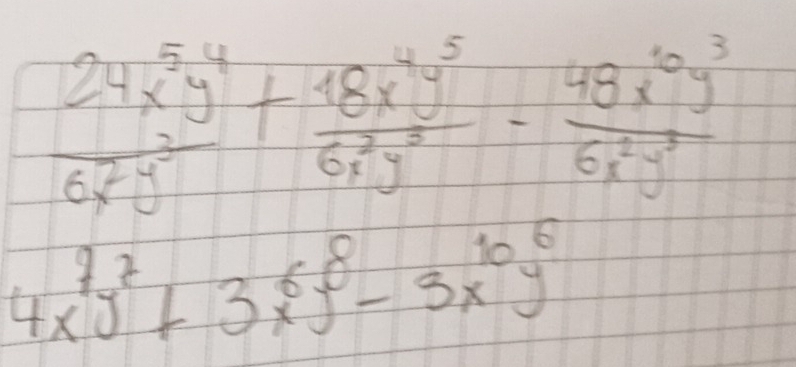 24x⁵y⁴/6x²y³ + 18x⁴y⁵/6x²y³ - 48x¹⁰y³/6x²y³
4x⁷y⁷ + 3x⁶y⁸ - 3x¹⁰y⁶